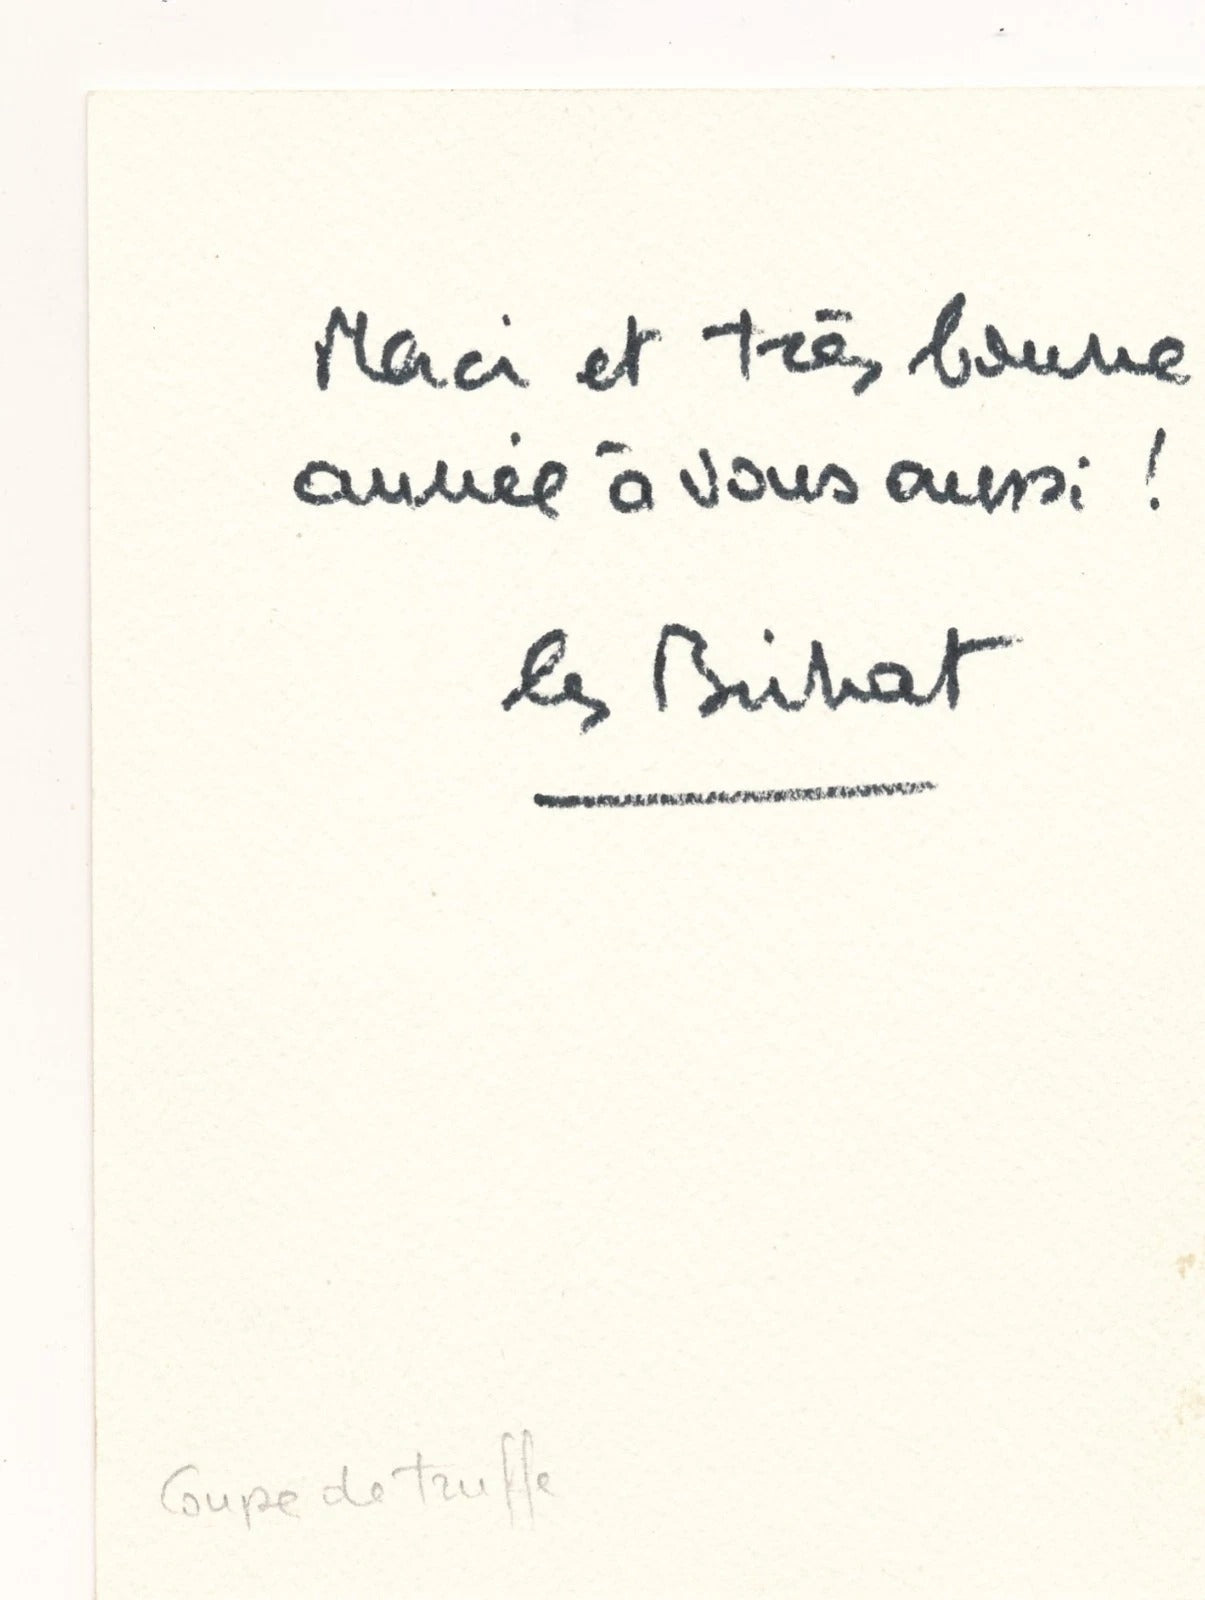 Merci et très bonne
année à vous aussi !
les
Coupe de truffe